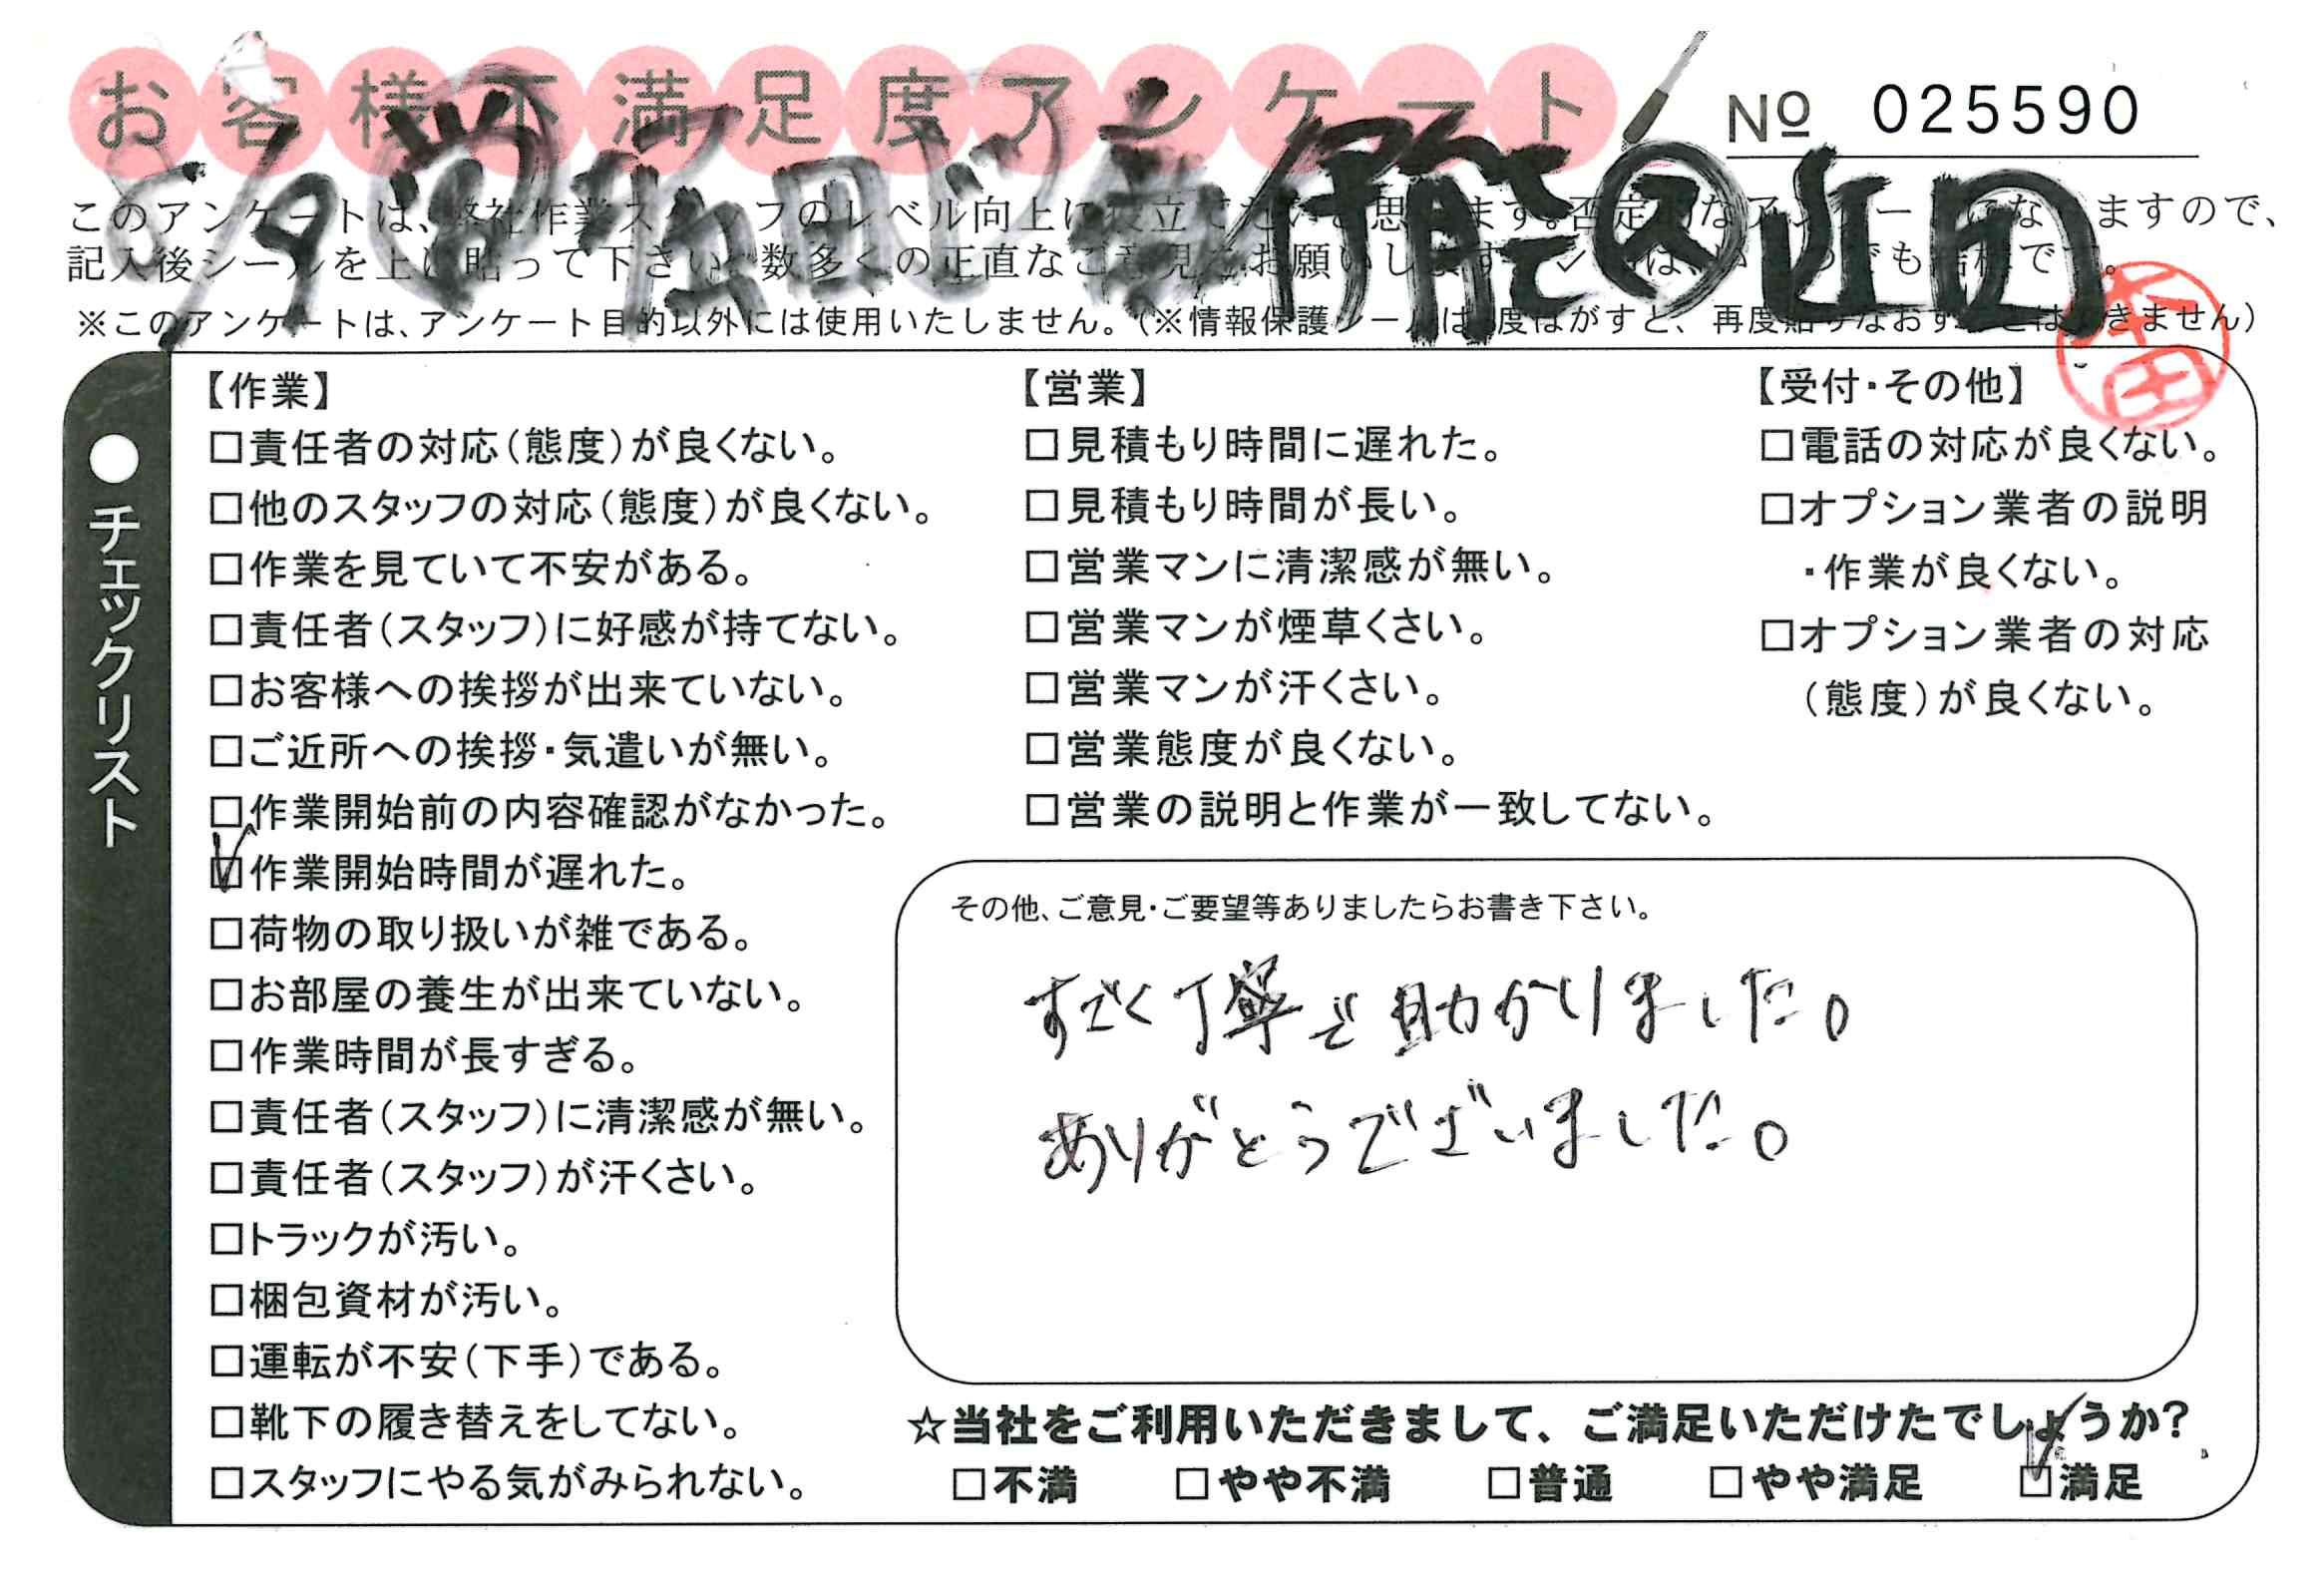 お客様不満足度アンケート
No 025590
5/9
このアンケートは、弊社作業スタッフのレベル向上に役立てたいと思います。否定的なアンケートになりますので、
記入後シールを上に貼って下さい。数多くの正直なご意見をお願いします。
※このアンケートは、アンケート目的以外には使用いたしません。(※情報保護シールは1度はがすと、再度貼りなおすことはできません)
●チェックリスト
【作業】
□責任者の対応(態度)が良くない。
□他のスタッフの対応(態度)が良くない。
□作業を見ていて不安がある。
□責任者(スタッフ)に好感が持てない。
□お客様への挨拶が出来ていない。
□ご近所への挨拶・気遣いが無い。
□作業開始前の内容確認がなかった。
☑作業開始時間が遅れた。
□荷物の取り扱いが雑である。
□お部屋の養生が出来ていない。
□作業時間が長すぎる。
□責任者(スタッフ)に清潔感が無い。
□責任者(スタッフ)が汗くさい。
□トラックが汚い。
□梱包資材が汚い。
□運転が不安(下手)である。
□靴下の履き替えをしてない。
□スタッフにやる気がみられない。
【営業】
□見積もり時間に遅れた。
□見積もり時間が長い。
□営業マンに清潔感が無い。
□営業マンが煙草くさい。
□営業マンが汗くさい。
□営業態度が良くない。
□営業の説明と作業が一致してない。
【受付・その他】
□電話の対応が良くない。
□オプション業者の説明
・作業が良くない。
□オプション業者の対応
(態度)が良くない。
その他、ご意見・ご要望等ありましたらお書き下さい。
すごく丁寧で助かりました。
ありがとうございました。
☆当社をご利用いただきまして、ご満足いただけたでしょうか?
□不満 □やや不満 □普通 □やや満足 ☑満足